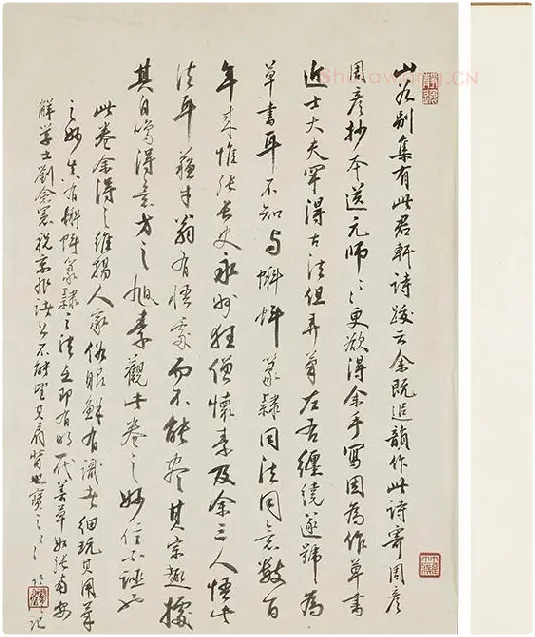 山谷别集有此君軒詩跋云余既追韻作此詩寄周彦
周彦抄本送元師ミ更欲得余手寫因為作草書
近士大夫罕得古法但弄筆左右纏繞遂號為
草書耳不知与蝌蚪篆隸同法同意數百
年来惟張長史永州狂僧懷素及余三人悟此
法耳蘇才翁有悟處而不能盡其宗趣據
其自喻得意方之旭素觀此卷之妙信不誣也
此卷余得之維揚人家俗眼鮮有識者細玩其用筆
之妙真有蝌蚪篆隸之法在即有明一代善草如張南安
解学士劉僉憲祝京兆諸公不能望其肩背也寶之ミ
記
Shufawang.CN